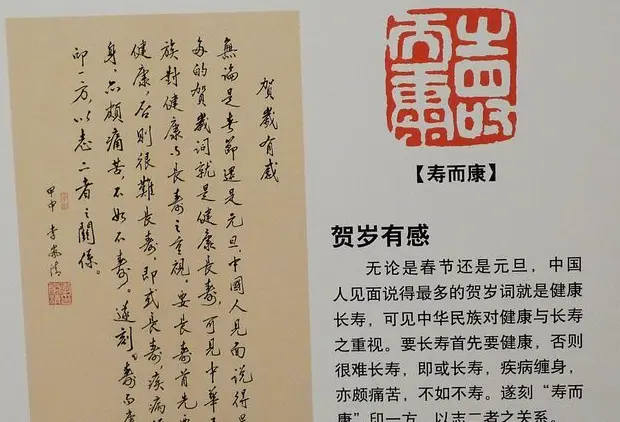 賀歲有感
無論是春節還是元旦,中國人見面説得
多的賀歲詞就是健康長壽,可見中華
族對健康与長壽之重視。要長壽首先要
健康,否則很難長壽,即或長壽,疾病
身,亦頗痛苦,不如不壽。遂刻“壽而康
印一方,以志二者之關係。
甲申 李嵐清
壽而康
【寿而康】
贺岁有感
无论是春节还是元旦，中国
人见面说得最多的贺岁词就是健康
长寿，可见中华民族对健康与长寿
之重视。要长寿首先要健康，否则
很难长寿，即或长寿，疾病缠身，
亦颇痛苦，不如不寿。遂刻“寿而
康”印一方，以志二者之关系。